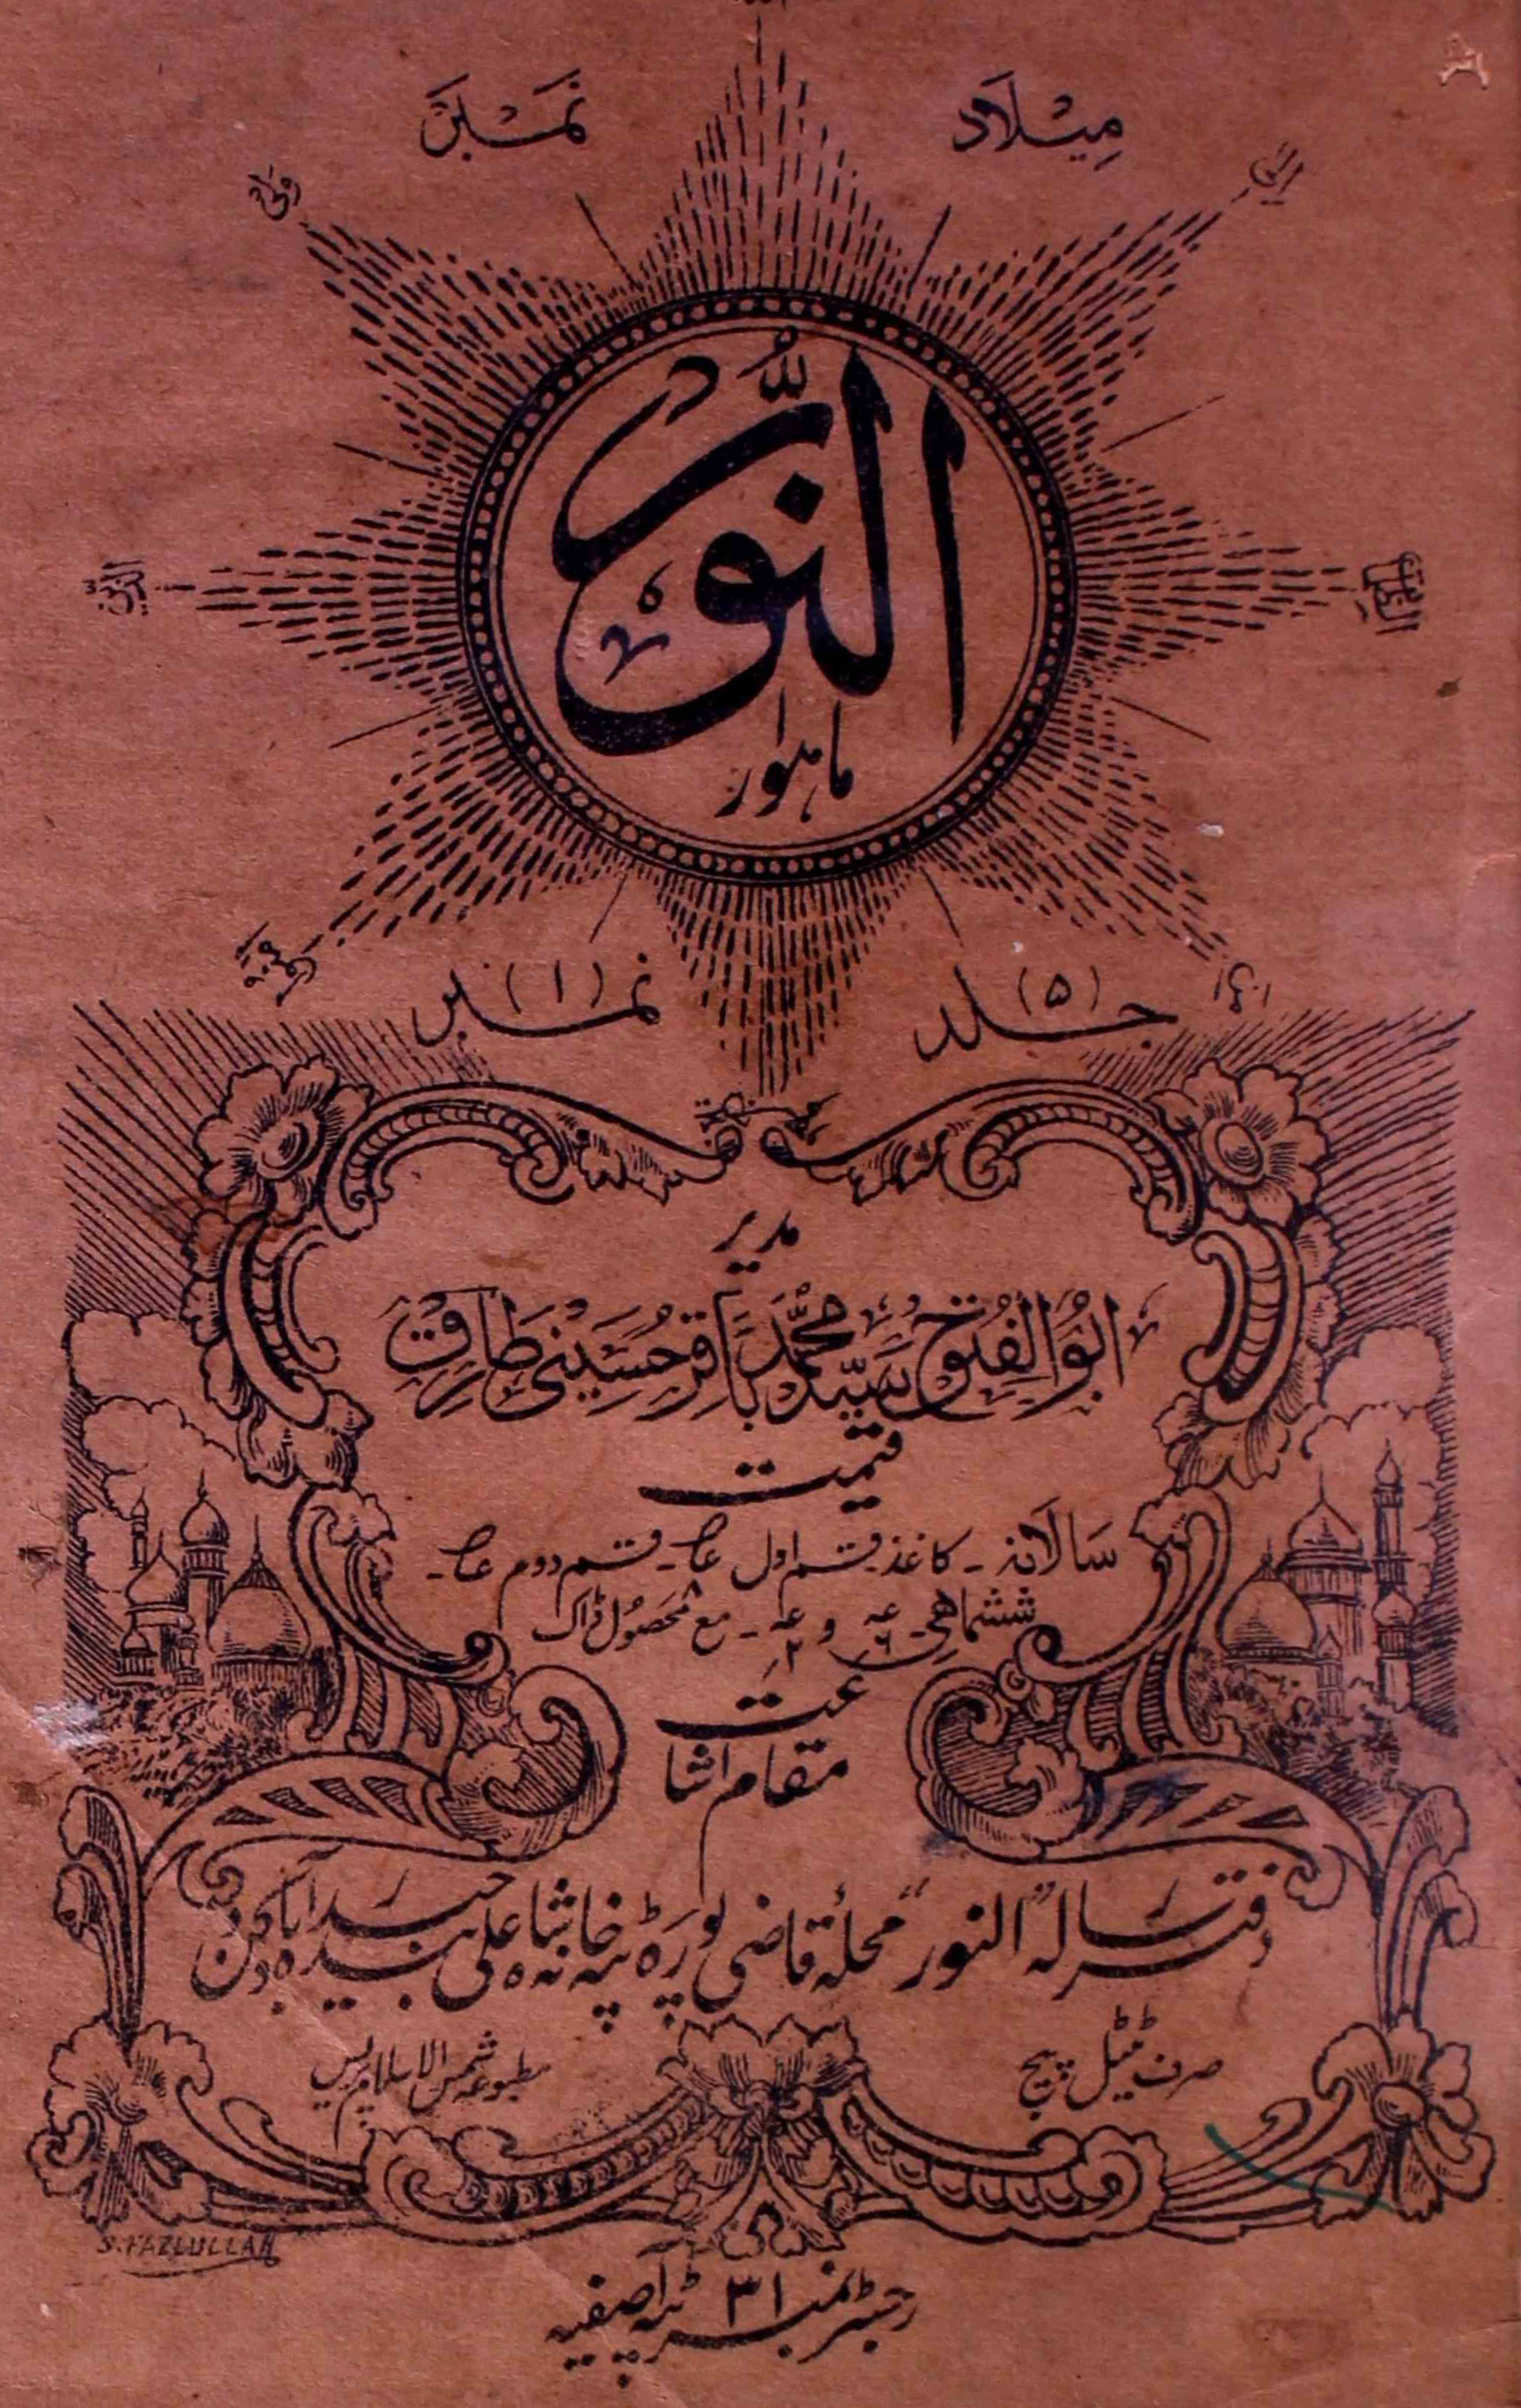 میلاد نمبر
النور
ماہوار
جلد (۵) نمبر (۱)
مدیر
ابو الفتوح سید محمد باقر حسینی طارق
قیمت
سالانہ ۔ کاغذ قسم اول ۔ قسم دوم ۔
ششماہی ۔ و ۔ مع محصول ڈاک
مقام اشاعت
دفتر رسالہ "النور" محلہ قاضی پورہ علی بنڈہ حیدرآباد دکن
صرف ٹیٹل پیج
مطبوعہ شمس الاسلام پریس
S. FAZLULLAH
رجسٹر نمبر ۳۱ ٹپہ آصفیہ